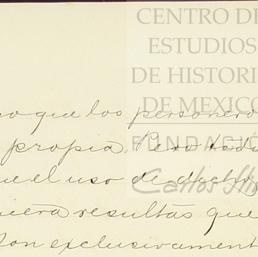 CENTRO DE
ESTUDIOS
DE HISTORI
DE MEXICO
FUNDACIÓ
Carlos Sli
que los personero
propia. Pero
el uso de dicho
uiera resultas que
son exclusivament